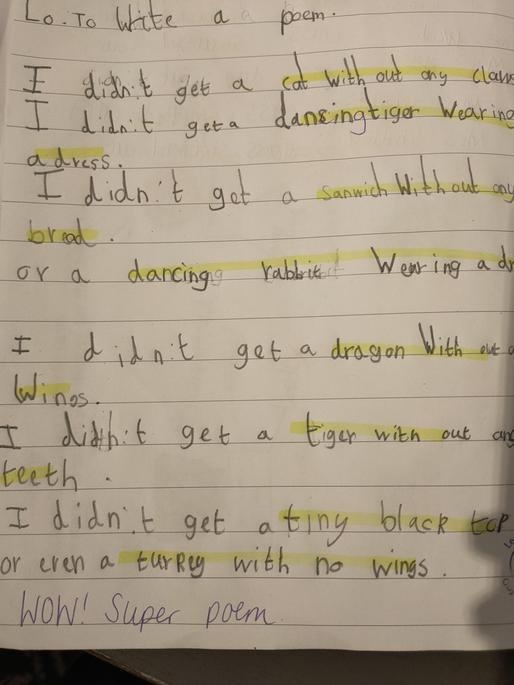 Lo. To Write a a poem.
I didn't get a cat with out any claws
I didn't get a dansingtiger Wearing
a dress.
I didn't get a sanwich Without any
bread.
or a dancing rabbit Wearing a dr
I didn't get a dragon With out a
Wings.
I didn't get a tiger with out any
teeth.
I didn't get a tiny black top
or even a turkey with no wings.
WOW! Super poem.